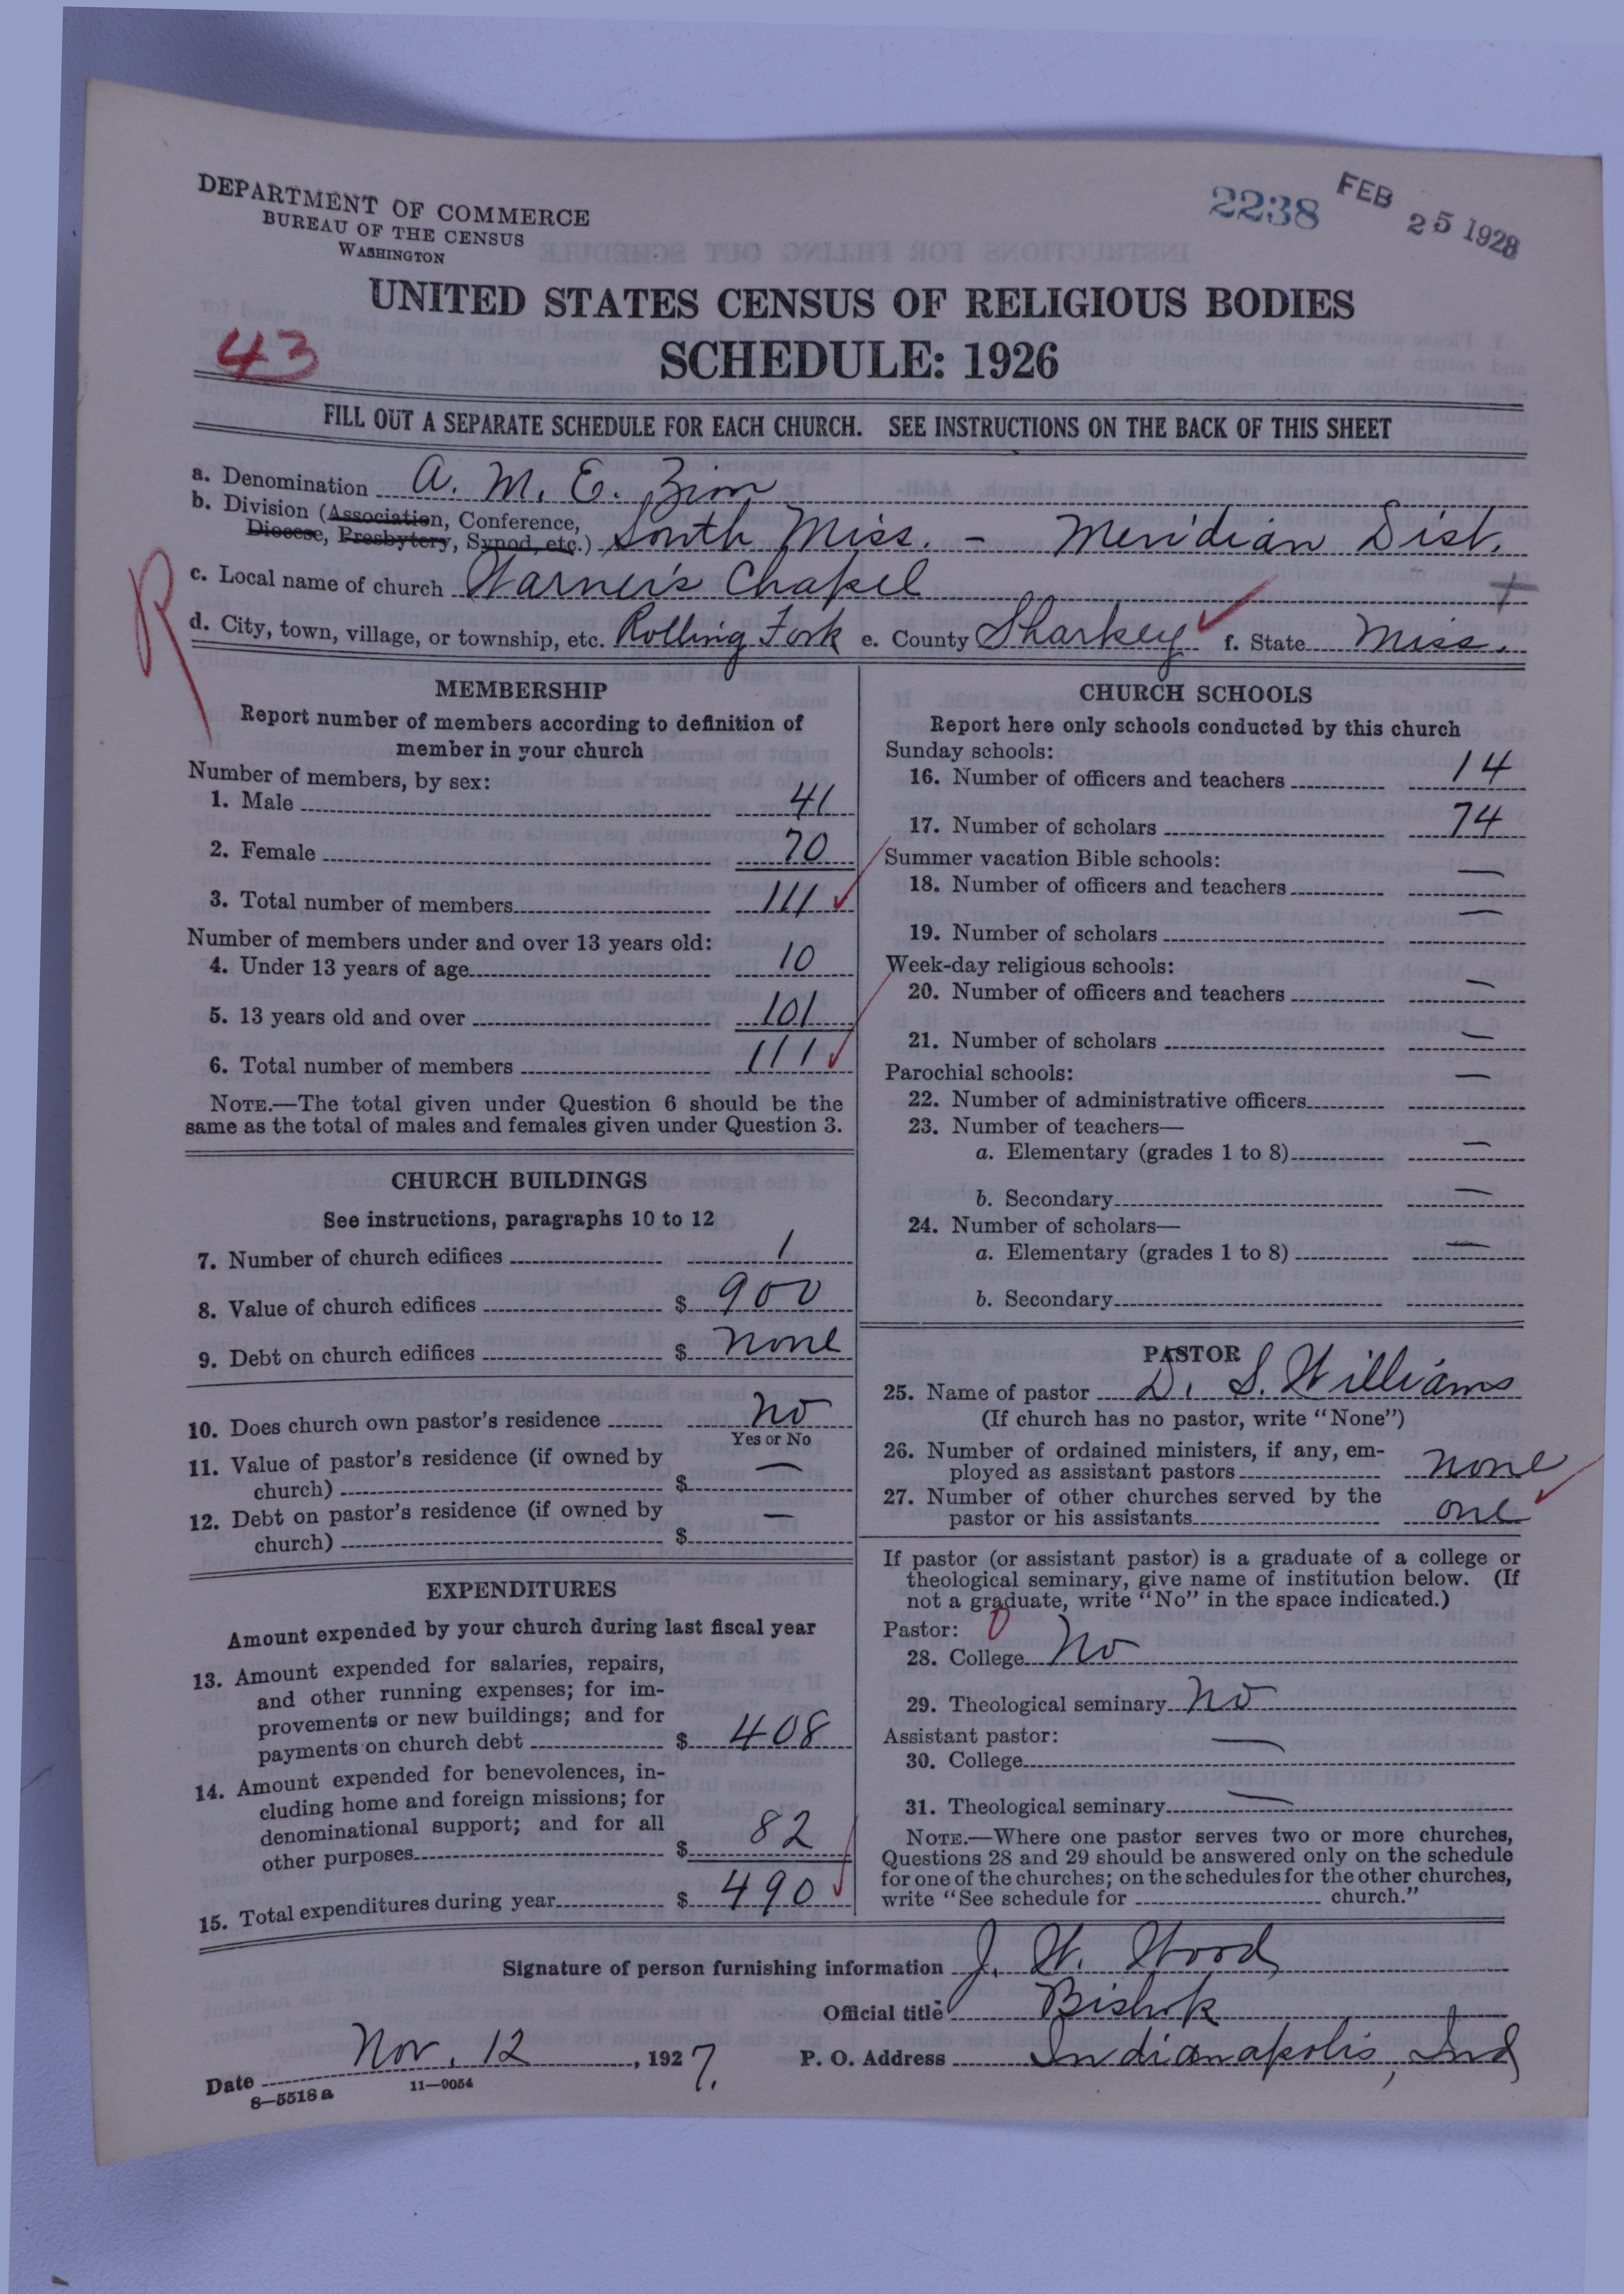 DEPARTMENT OF COMMERCE
BUREAU OF THE CENSUS
WASHINGTON
2238
FEB 25 1928
UNITED STATES CENSUS OF RELIGIOUS BODIES
43
SCHEDULE: 1926
FILL OUT A SEPARATE SCHEDULE FOR EACH CHURCH. SEE INSTRUCTIONS ON THE BACK OF THIS SHEET
a. Denomination A. M. E. Zion
b. Division (Association, Conference,
Diocese, Presbytery, Synod, etc.) South Miss. - Meridian Dist.
c. Local name of church Warner's Chapel
R
d. City, town, village, or township, etc. Rolling Fork e. County Sharkey f. State Miss.
MEMBERSHIP
Report number of members according to definition of
member in your church
Number of members, by sex:
1. Male 41
2. Female 70
3. Total number of members 111
Number of members under and over 13 years old:
4. Under 13 years of age 10
5. 13 years old and over 101
6. Total number of members 111
NOTE.—The total given under Question 6 should be the
same as the total of males and females given under Question 3.
CHURCH BUILDINGS
See instructions, paragraphs 10 to 12
7. Number of church edifices 1
8. Value of church edifices $ 900
9. Debt on church edifices $ none
10. Does church own pastor's residence no
Yes or No
11. Value of pastor's residence (if owned by
church) $ —
12. Debt on pastor's residence (if owned by
church) $ —
EXPENDITURES
Amount expended by your church during last fiscal year
13. Amount expended for salaries, repairs,
and other running expenses; for im-
provements or new buildings; and for
payments on church debt $ 408
14. Amount expended for benevolences, in-
cluding home and foreign missions; for
denominational support; and for all
other purposes $ 82
15. Total expenditures during year $ 490
CHURCH SCHOOLS
Report here only schools conducted by this church
Sunday schools:
16. Number of officers and teachers 14
17. Number of scholars 74
Summer vacation Bible schools:
18. Number of officers and teachers —
19. Number of scholars —
Week-day religious schools:
20. Number of officers and teachers —
21. Number of scholars —
Parochial schools:
22. Number of administrative officers —
23. Number of teachers—
a. Elementary (grades 1 to 8) —
b. Secondary —
24. Number of scholars—
a. Elementary (grades 1 to 8) —
b. Secondary
PASTOR
25. Name of pastor D. S. Williams
(If church has no pastor, write "None")
26. Number of ordained ministers, if any, em-
ployed as assistant pastors none
27. Number of other churches served by the
pastor or his assistants one
If pastor (or assistant pastor) is a graduate of a college or
theological seminary, give name of institution below. (If
not a graduate, write "No" in the space indicated.)
Pastor: 0
28. College No
29. Theological seminary no
Assistant pastor:
30. College —
31. Theological seminary —
NOTE.—Where one pastor serves two or more churches,
Questions 28 and 29 should be answered only on the schedule
for one of the churches; on the schedules for the other churches,
write "See schedule for church."
Signature of person furnishing information J. W. Wood
Official title Bishop
Date Nov. 12, 1927. P. O. Address Indianapolis, Ind
8—5518 a 11—9054